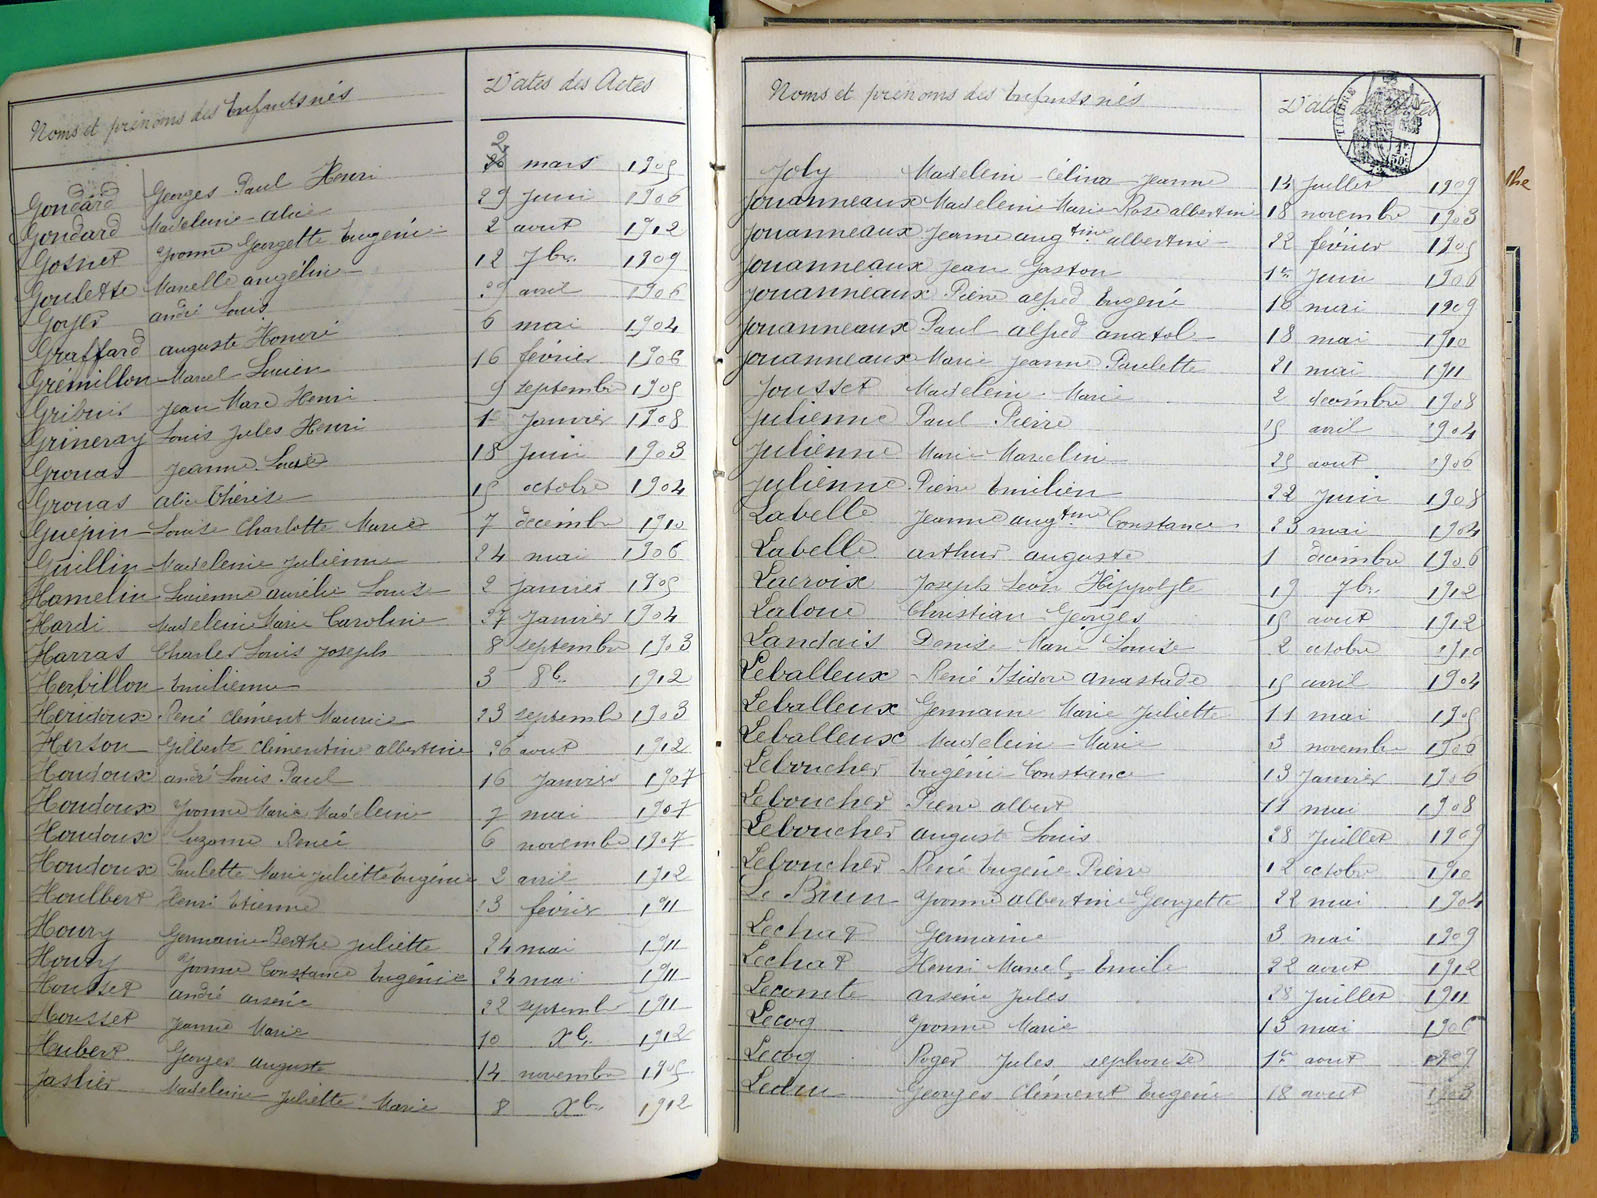 Noms et prénoms des Enfants nés Dates des Actes
Gondard Georges Paul Henri 2 mars 1905
Gondard Madeleine alice 29 Juin 1906
Gosnet Yvonne Georgette Eugénie 2 aout 1912
Goulette Marcelle angéline 12 7bre 1909
Goyer andré Louis 29 avril 1906
Graffard auguste Honoré 6 mai 1904
Grémillon Marcel Lucien 16 février 1906
Gribuis Jean Marc Henri 9 septembre 1905
Grineray Louis Jules Henri 1er Janvier 1908
Grouas Jeanne Louise 18 Juin 1903
Grouas alice Thérèse 15 octobre 1904
Guépin Louise Charlotte Marie 7 décembre 1910
Guillin Madeleine Julienne 24 mai 1906
Hamelin Lucienne aurélie Louise 2 Janvier 1905
Hardi Madeleine Marie Caroline 27 Janvier 1904
Harras Charles Louis Joseph 8 septembre 1903
Herbillon Emilienne 3 8b 1912
Héridoux René Clément Maurice 23 septembre 1903
Herson Gilberte Clémentine albertine 26 aout 1912
Houdoux andré Louis Paul 16 Janvier 1907
Houdoux Yvonne Marie Madeleine 7 mai 1907
Houdoux Suzanne Renée 6 novembre 1907
Houdoux Paulette Marie Juliette Eugénie 2 avril 1912
Houlbert Henri Etienne 23 fevrier 1911
Houry Germaine Berthe Juliette 24 mai 1911
Houry Yvonne Constance Eugénie 24 mai 1911
Housset andré arsène 22 septembre 1911
Housset Jeanne Marie 10 Xbre 1912
Hubert Georges auguste 14 novembre 1905
Jastier Madeleine Juliette Marie 8 Xbre 1912
Noms et prénoms des Enfants nés Dates des Actes
TIMBRE
Joly Madeleine Célina Jeanne 14 Juillet 1909
Jouanneaux Madeleine Marie Rose albertine 18 novembre 1903
Jouanneaux Jeanne augtine albertine 22 février 1905
Jouanneaux Jean Gaston 1er Juin 1906
Jouanneaux Pierre alfred Eugène 18 mai 1909
Jouanneaux Paul alfred anatole 18 mai 1910
Jouanneaux Marie Jeanne Paulette 21 mai 1911
Jousset Madeleine Marie 2 décembre 1908
Julienne Paul Pierre 15 avril 1904
Julienne Marie Marcelin 25 aout 1906
Julienne Pierre Emilien 22 Juin 1908
Labelle Jeanne augtine Constance 23 mai 1904
Labelle arthur auguste 1 décembre 1906
Lacroix Joseph Léon Hippolyte 19 7bre 1912
Laloue Christian Georges 15 aout 1912
Landais Denise Marie Louise 2 octobre 1910
Leballeux René Isidore anastade 15 avril 1904
Leballeux Germaine Marie Juliette 11 mai 1905
Leballeux Madeleine Marie 3 novembre 1906
Leboucher Eugénie Constance 13 Janvier 1906
Leboucher Pierre albert 11 mai 1908
Leboucher auguste Louis 28 Juillet 1909
Leboucher René Eugène Pierre 12 octobre 1910
Le Brun Yvonne albertine Georgette 22 mai 1904
Lechat Germaine 3 mai 1909
Lechat Henri Marcel Emile 22 aout 1912
Lecomte arsène Jules 28 Juillet 1911
Lecoq Yvonne Marie 13 mai 1906
Lecoq Roger Jules alphonse 1er aout 1909
Leduc Georges Clément Eugène 18 aout 1903